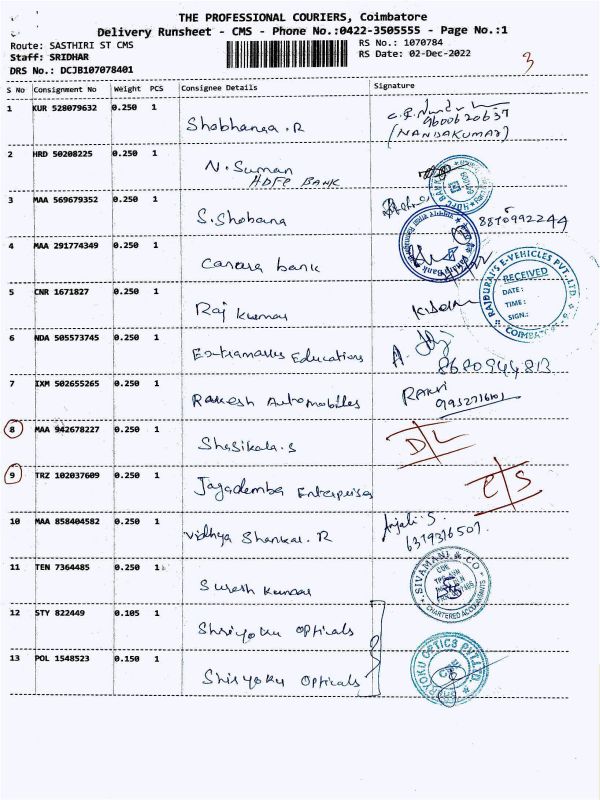 THE PROFESSIONAL COURIERS, Coimbatore
Delivery Runsheet - CMS - Phone No.:0422-3505555 - Page No.:1
Route: SASTHIRI ST CMS
RS No.: 1070784
Staff: SRIDHAR
RS Date: 02-Dec-2022
DRS No.: DCJB107078401
3
S No Consignment No Weight PCS Consignee Details Signature
1 KUR 528079632 0.250 1 Shobhanaa.R
9600620637
(NANDAKUMAR)
2 HRD 50208225 0.250 1 N. Suman
HDFC BANK
3 MAA 569679352 0.250 1 S. Shobana
8870992244
4 MAA 291774349 0.250 1 Canara bank
RAJDURAI'S E-VEHICLES PVT. LTD.
RECEIVED
DATE:
TIME:
SIGN.:
COIMBATORE
5 CNR 1671827 0.250 1 Raj Kumar
6 NDA 505573745 0.250 1 Extramarks Educations
8680944813
7 IXM 502655265 0.250 1 Rakesh Automobiles
RAKVI
8 MAA 942678227 0.250 1 Shasikala.S D/L
9 TRZ 102037609 0.250 1 Jagadamba Enterprises C/S
10 MAA 858404582 0.250 1 Vidhya Shankar. R
Anjali. S.
6379376507
11 TEN 7364485 0.250 1 Suresh Kumar
SIVAMANI & CO
CHARTERED ACCOUNTANTS
12 STY 822449 0.105 1 Shriyoku Opticals
13 POL 1548523 0.150 1 Shriyoku Opticals
OPTICS PVT LTD.